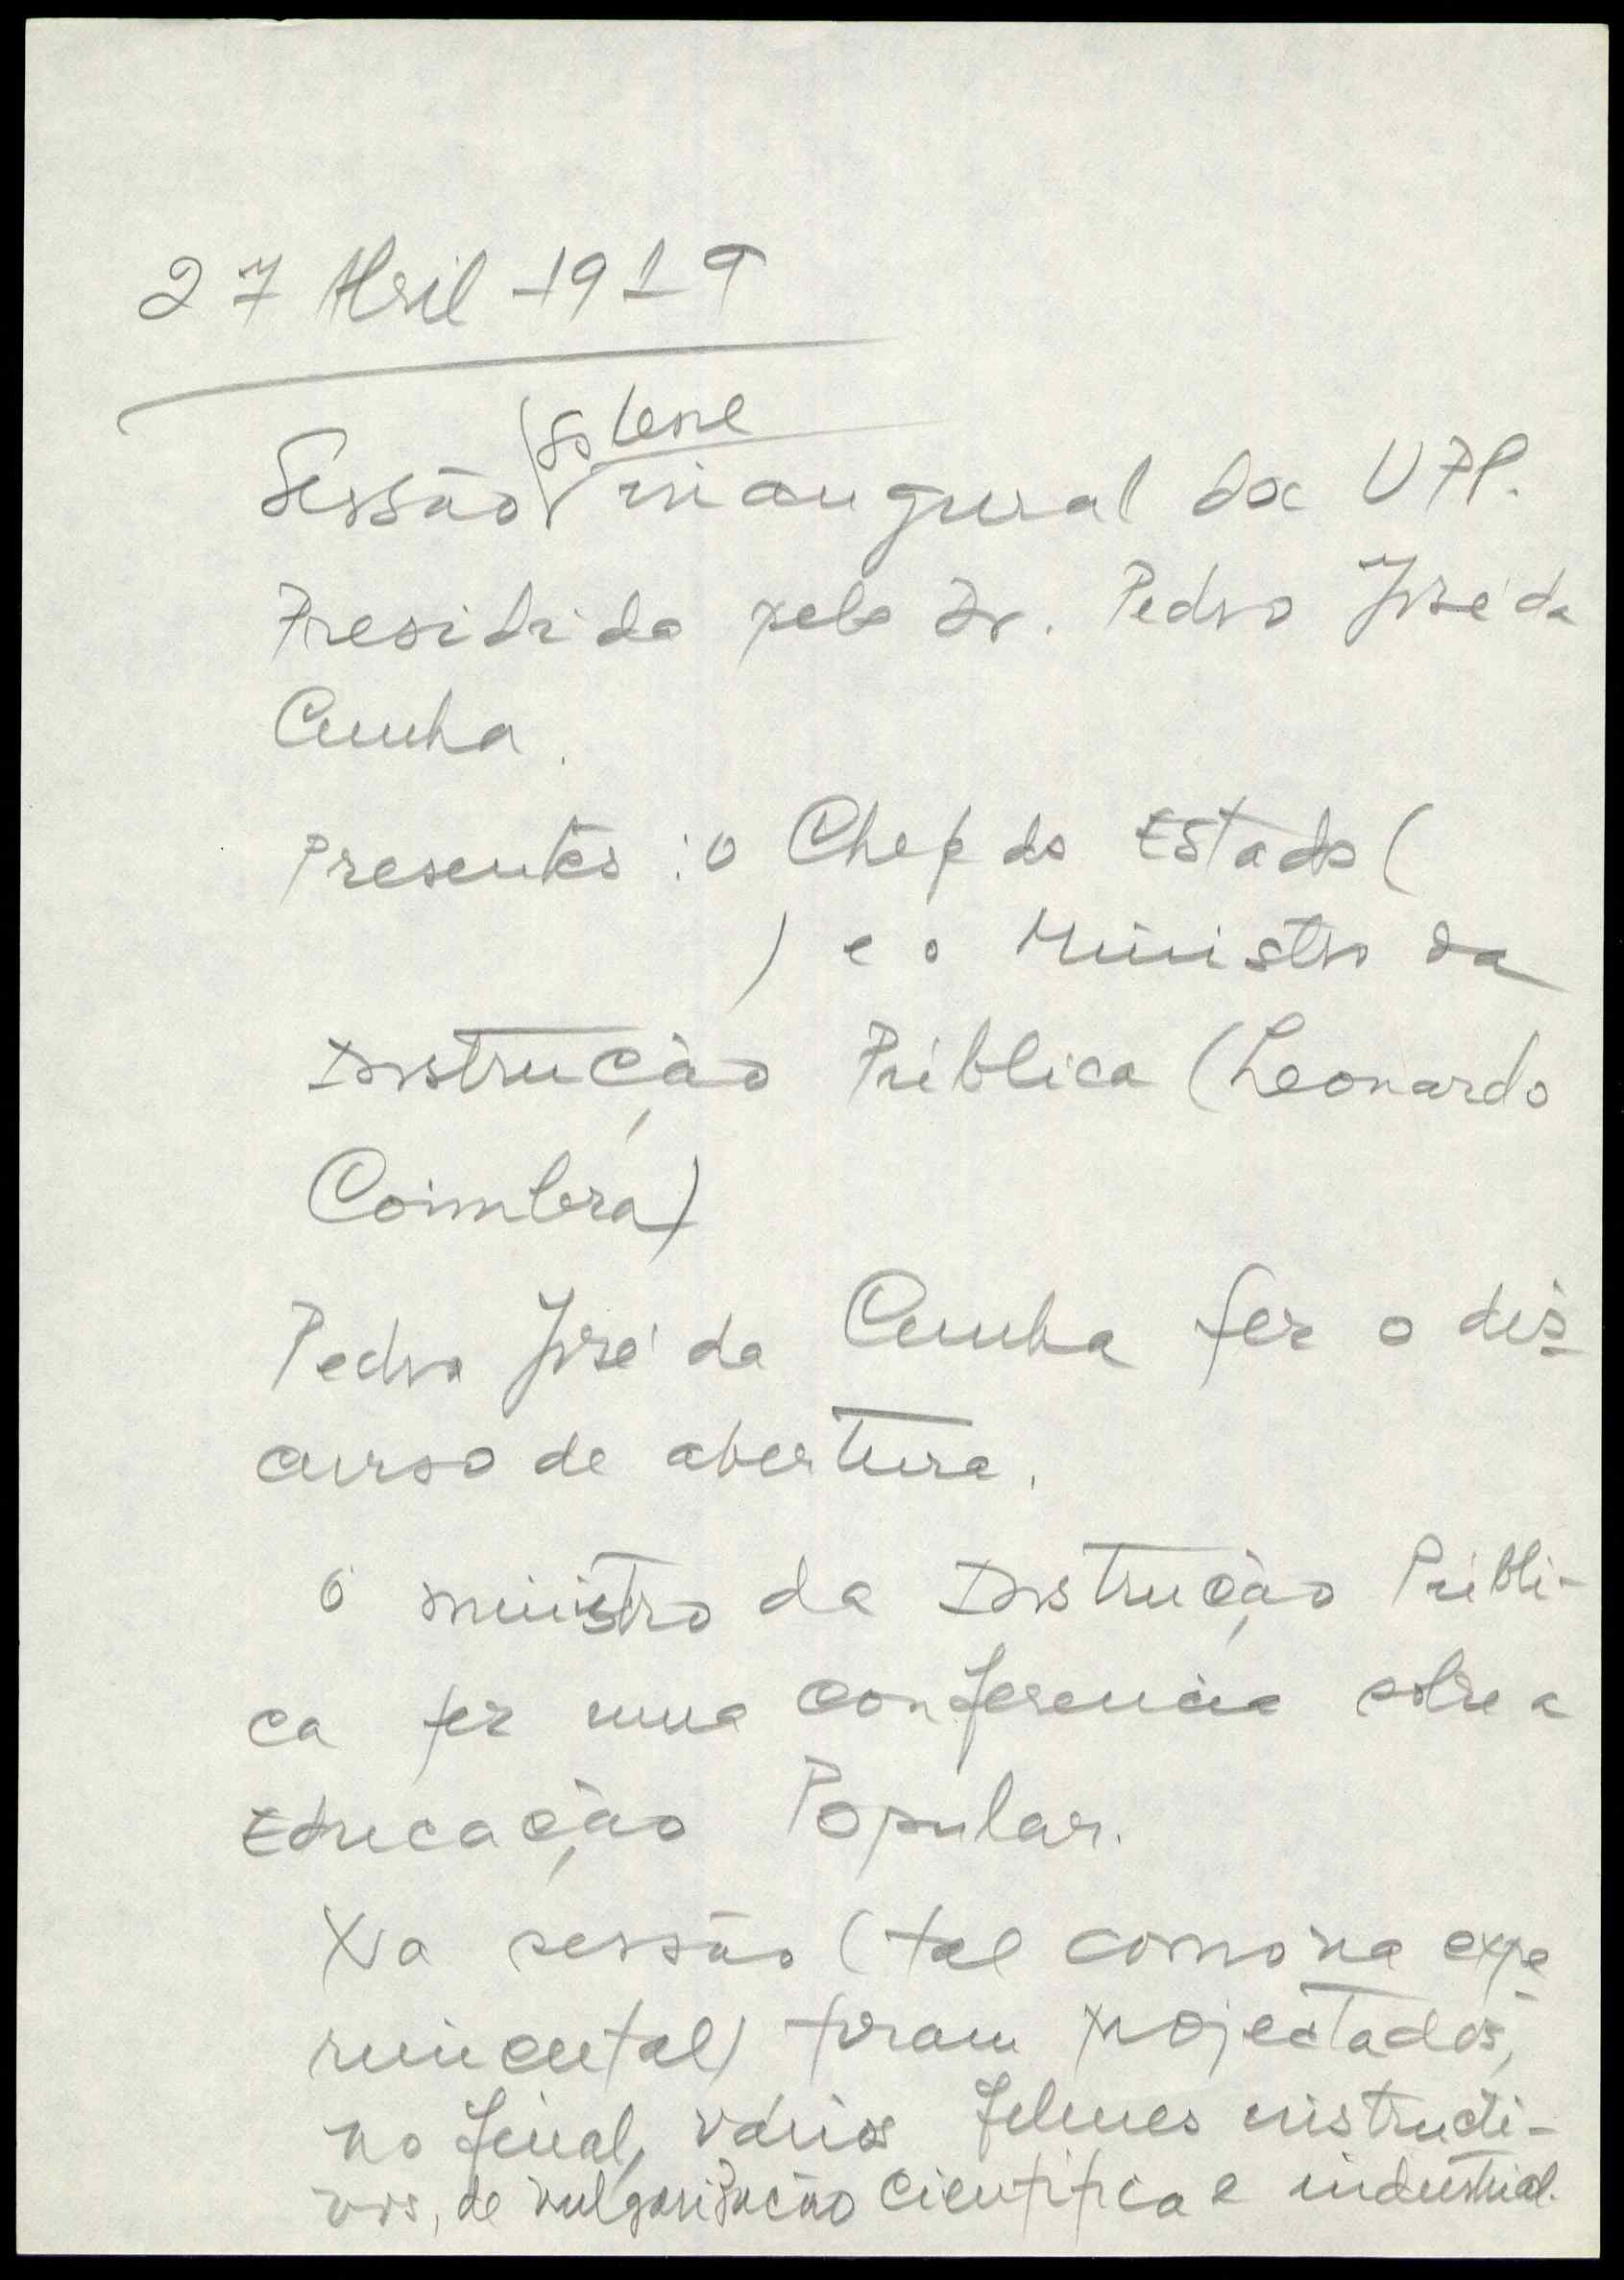 27 Abril 1919
solene
Sessão inaugural da UPP.
Presidida pelo Dr. Pedro José da
Cunha.
Presentes: o Chefe do Estado (
) e o Ministro da
Instrução Pública (Leonardo
Coimbra)
Pedro José da Cunha fez o dis-
curso de abertura.
O ministro da Instrução Públi-
ca fez uma conferencia sobre a
Educação Popular.
Na sessão (tal como na expe-
rimental) foram projectados,
no final, vários filmes instructi-
vos, de vulgarização cientifica e industrial.